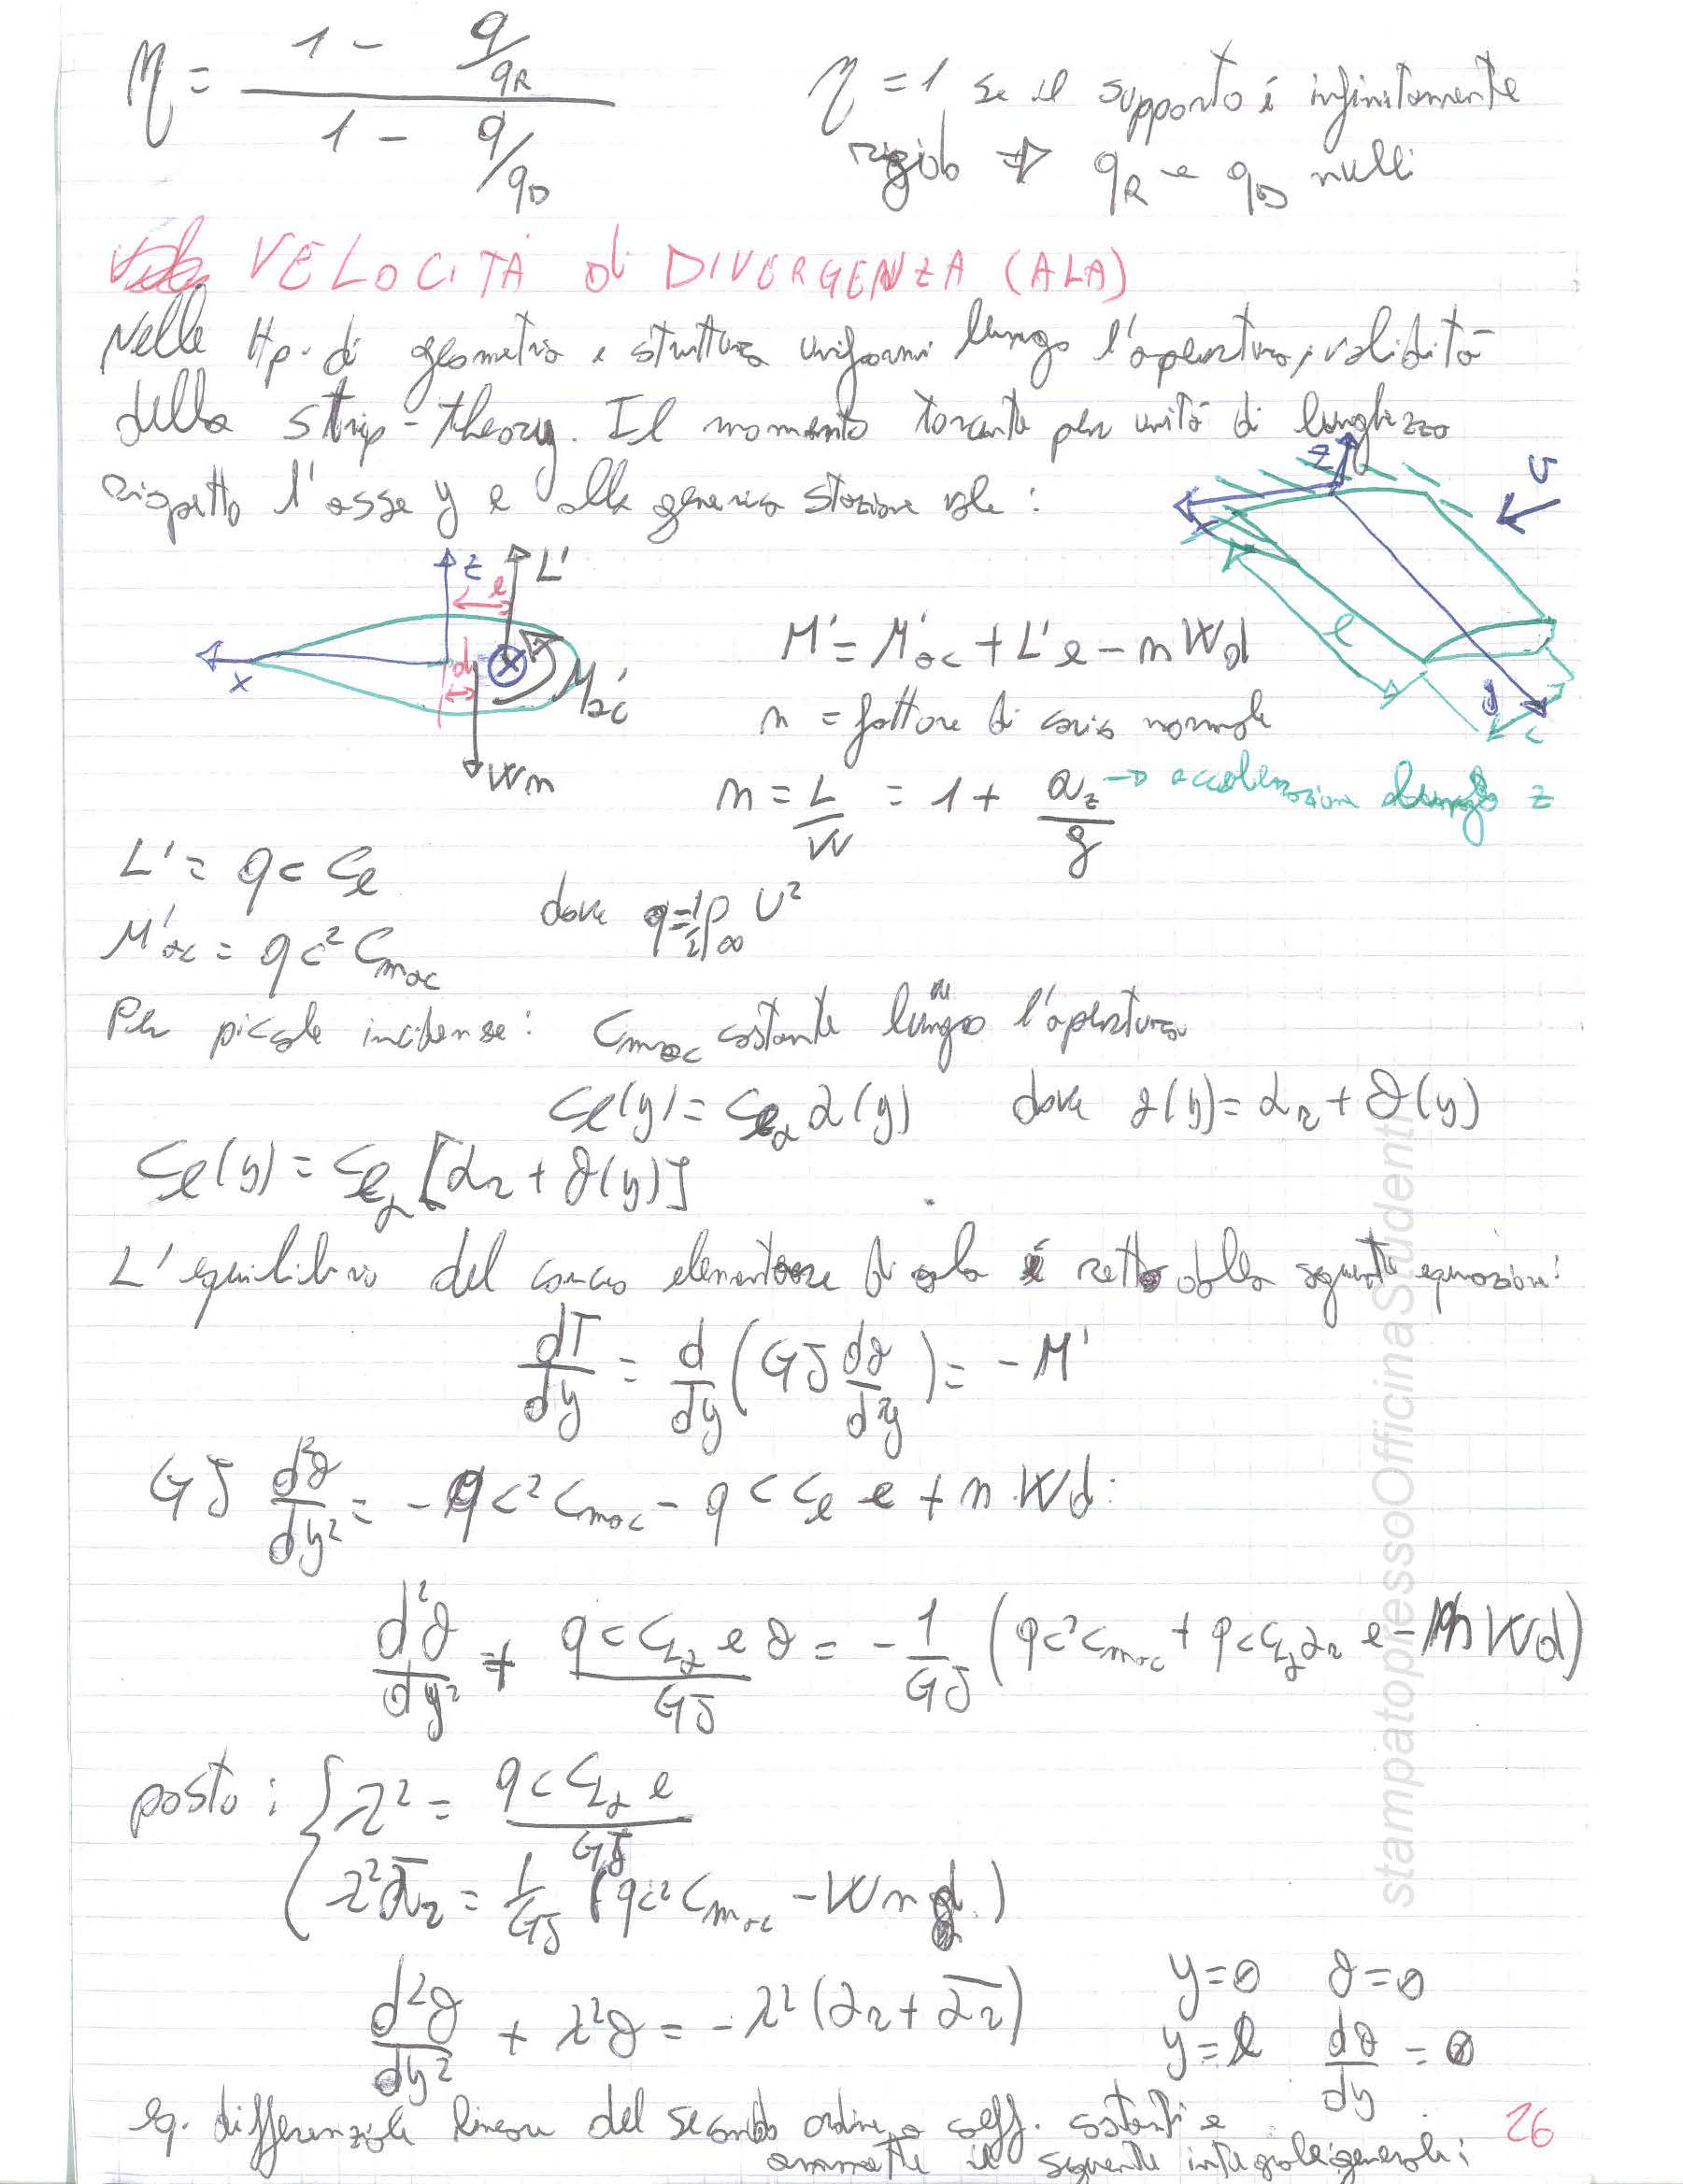 η = (1 - q/qR) / (1 - q/qD)
η = 1 se il supporto è infinitamente
rigido ⇒ qR e qD nulli
VELOCITÀ di DIVERGENZA (ALA)
Nelle Hp. di geometria e struttura uniformi lungo l'apertura, validità
della strip-theory. Il momento torcente per unità di lunghezza
rispetto l'asse y e alla generica stazione vale:
z L' e d x M'ac Wn
z U x l y c
M' = M'ac + L'e - nWd
n = fattore di carico normale
n = L/W = 1 + az/g → accelerazione lungo z
L' = q c Cl
M'ac = q c² Cmac
dove q = 1/2 ρ∞ U²
Per piccole incidenze: Cmac costante lungo l'apertura
Cl(y) = Clα α(y) dove α(y) = αr + θ(y)
Cl(y) = Clα [αr + θ(y)]
L'equilibrio del concio elementare di ala è retto dalla seguente equazione:
dT/dy = d/dy (GJ dθ/dy) = -M'
GJ d²θ/dy² = - q c² Cmac - q c Cl e + n Wd
d²θ/dy² + (q c CLα e θ)/GJ = - 1/GJ (q c² Cmac + q c CLα αr e - n Wd)
posto: { λ² = q c CLα e / GJ
λ² ᾱr = 1/GJ (q c² Cmac - W n d)
d²θ/dy² + λ²θ = - λ² (αr + ᾱr)
y=0 θ=0
y=l dθ/dy = 0
eq. differenziale lineare del secondo ordine a coeff. costanti e
ammette il seguente integrale generale:
26
stampatopressoOfficinaStudenti